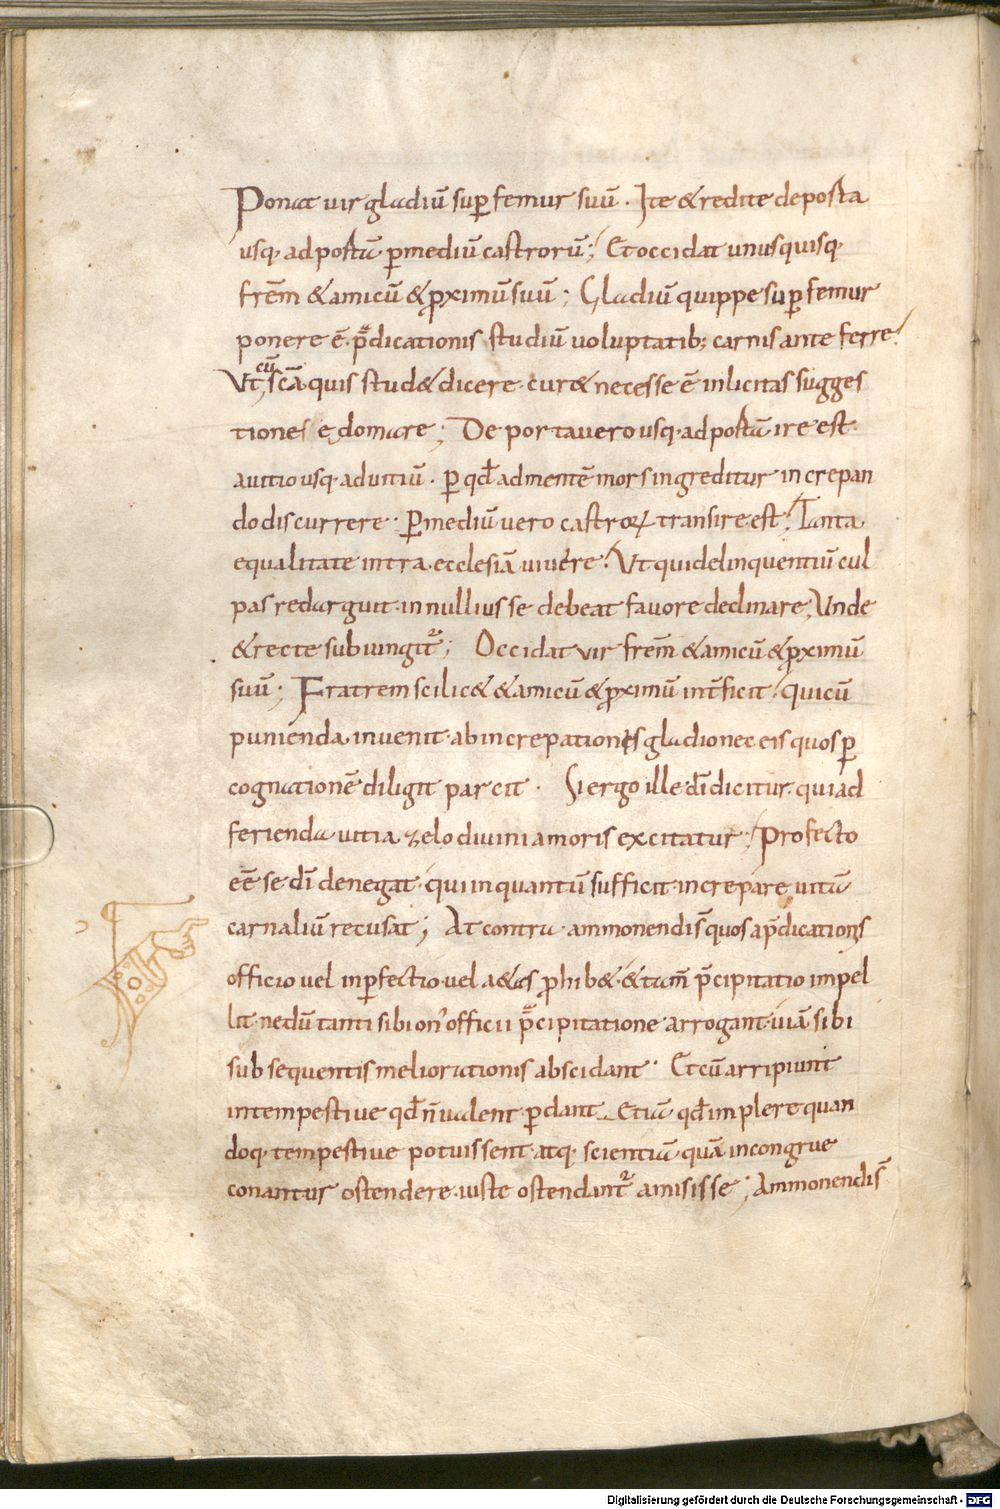 Ponat vir gladiū sup̄ femur suū. Ite & redite de posta
usq; ad postā p̄ mediū castrorū; Et occidat unusquisq;
frēm & amicū & p̄ximū suū; Gladiū quippe sup̄ femur
ponere ē. p̄dicationis studiū voluptatib; carnis ante ferre.
Ut cū scā quis stud& dicere. cur& necesse ē inlicitas sugges
tiones edomare; De porta vero usq; ad postā ire est.
a vitio usq; ad vitiū. p̄ qđ ad mentē mors ingreditur increpan
do discurrere. P̄ mediū vero castroꝝ transire est; Tanta
equalitate intra ecclesiā vivere. Ut qui delinquentiū cul
pas redarguit. in nullius se debeat favore declinare; Unde
& recte subiungit᷑; Occidat vir frēm & amicū & p̄ximū
suū; Fratrem scilic& & amicū & p̄ximū int̄ficit. qui cū
punienda invenit. ab increpationis gladio nec eis quos p̄
cognationē diligit parcit. Si ergo ille dī dicitur. qui ad
ferienda vitia zelo divini amoris excitatur; Profecto
eē se dī denegat. qui inquantū sufficit increpare vitā
carnaliū recusat; At contra ammonendi s̄ quos a p̄dicationis
officio vel inp̄fectio vel a&as p̄hib& & tam̄ p̄cipitatio impel
lit. ne dū tanti sibi on᾿ officii p̄cipitatione arrogant. viā sibi
subsequentis meliorationis abscidant. Et cū arripiunt
intempestive qđ n̄ valent. p̄dant. Etiā qđ implere quan
doq; tempestive potuissent. atq; scientiā quā incongrue
conantur ostendere. iuste ostendant᷑ amisisse; Ammonendi s̄
Digitalisierung gefördert durch die Deutsche Forschungsgemeinschaft - DFG